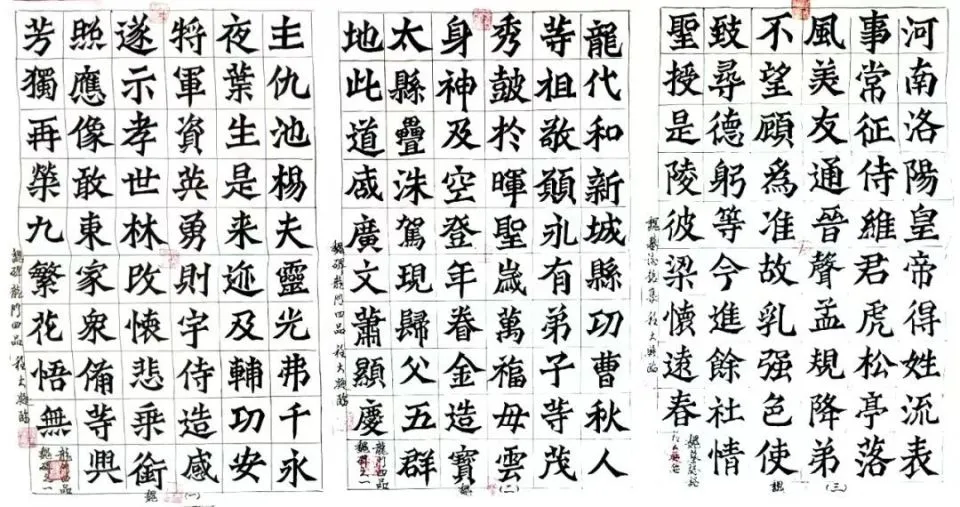 主仇池楊夫靈光弗千永
夜葉生是来迩及輔功安
将軍資英勇則宇侍造感
遂示孝世林改懐悲乘銜
照應像敢東家衆備等興
芳獨再榮九繁花悟無
龍門四品
魏碑之一
魏碑龍門四品
魏
(一)
龍代和新城縣功曹秋人
等祖敬顛永有弟子等茂
秀皷扵暉聖歲萬福母雲
身神及空登年眷金造寶
太縣疊洙駕現歸父五群
地此道感廣文蕭顯慶
龍門四品
魏碑之一
魏碑龍門四品
魏
(二)
河南洛陽皇帝得姓流表
事常征侍維君虎松亭落
風美友通晉聲孟規降弟
不望顧為准故乳强色使
致尋德躬等今進餘社情
聖授是陵彼梁懷遠春
(三)